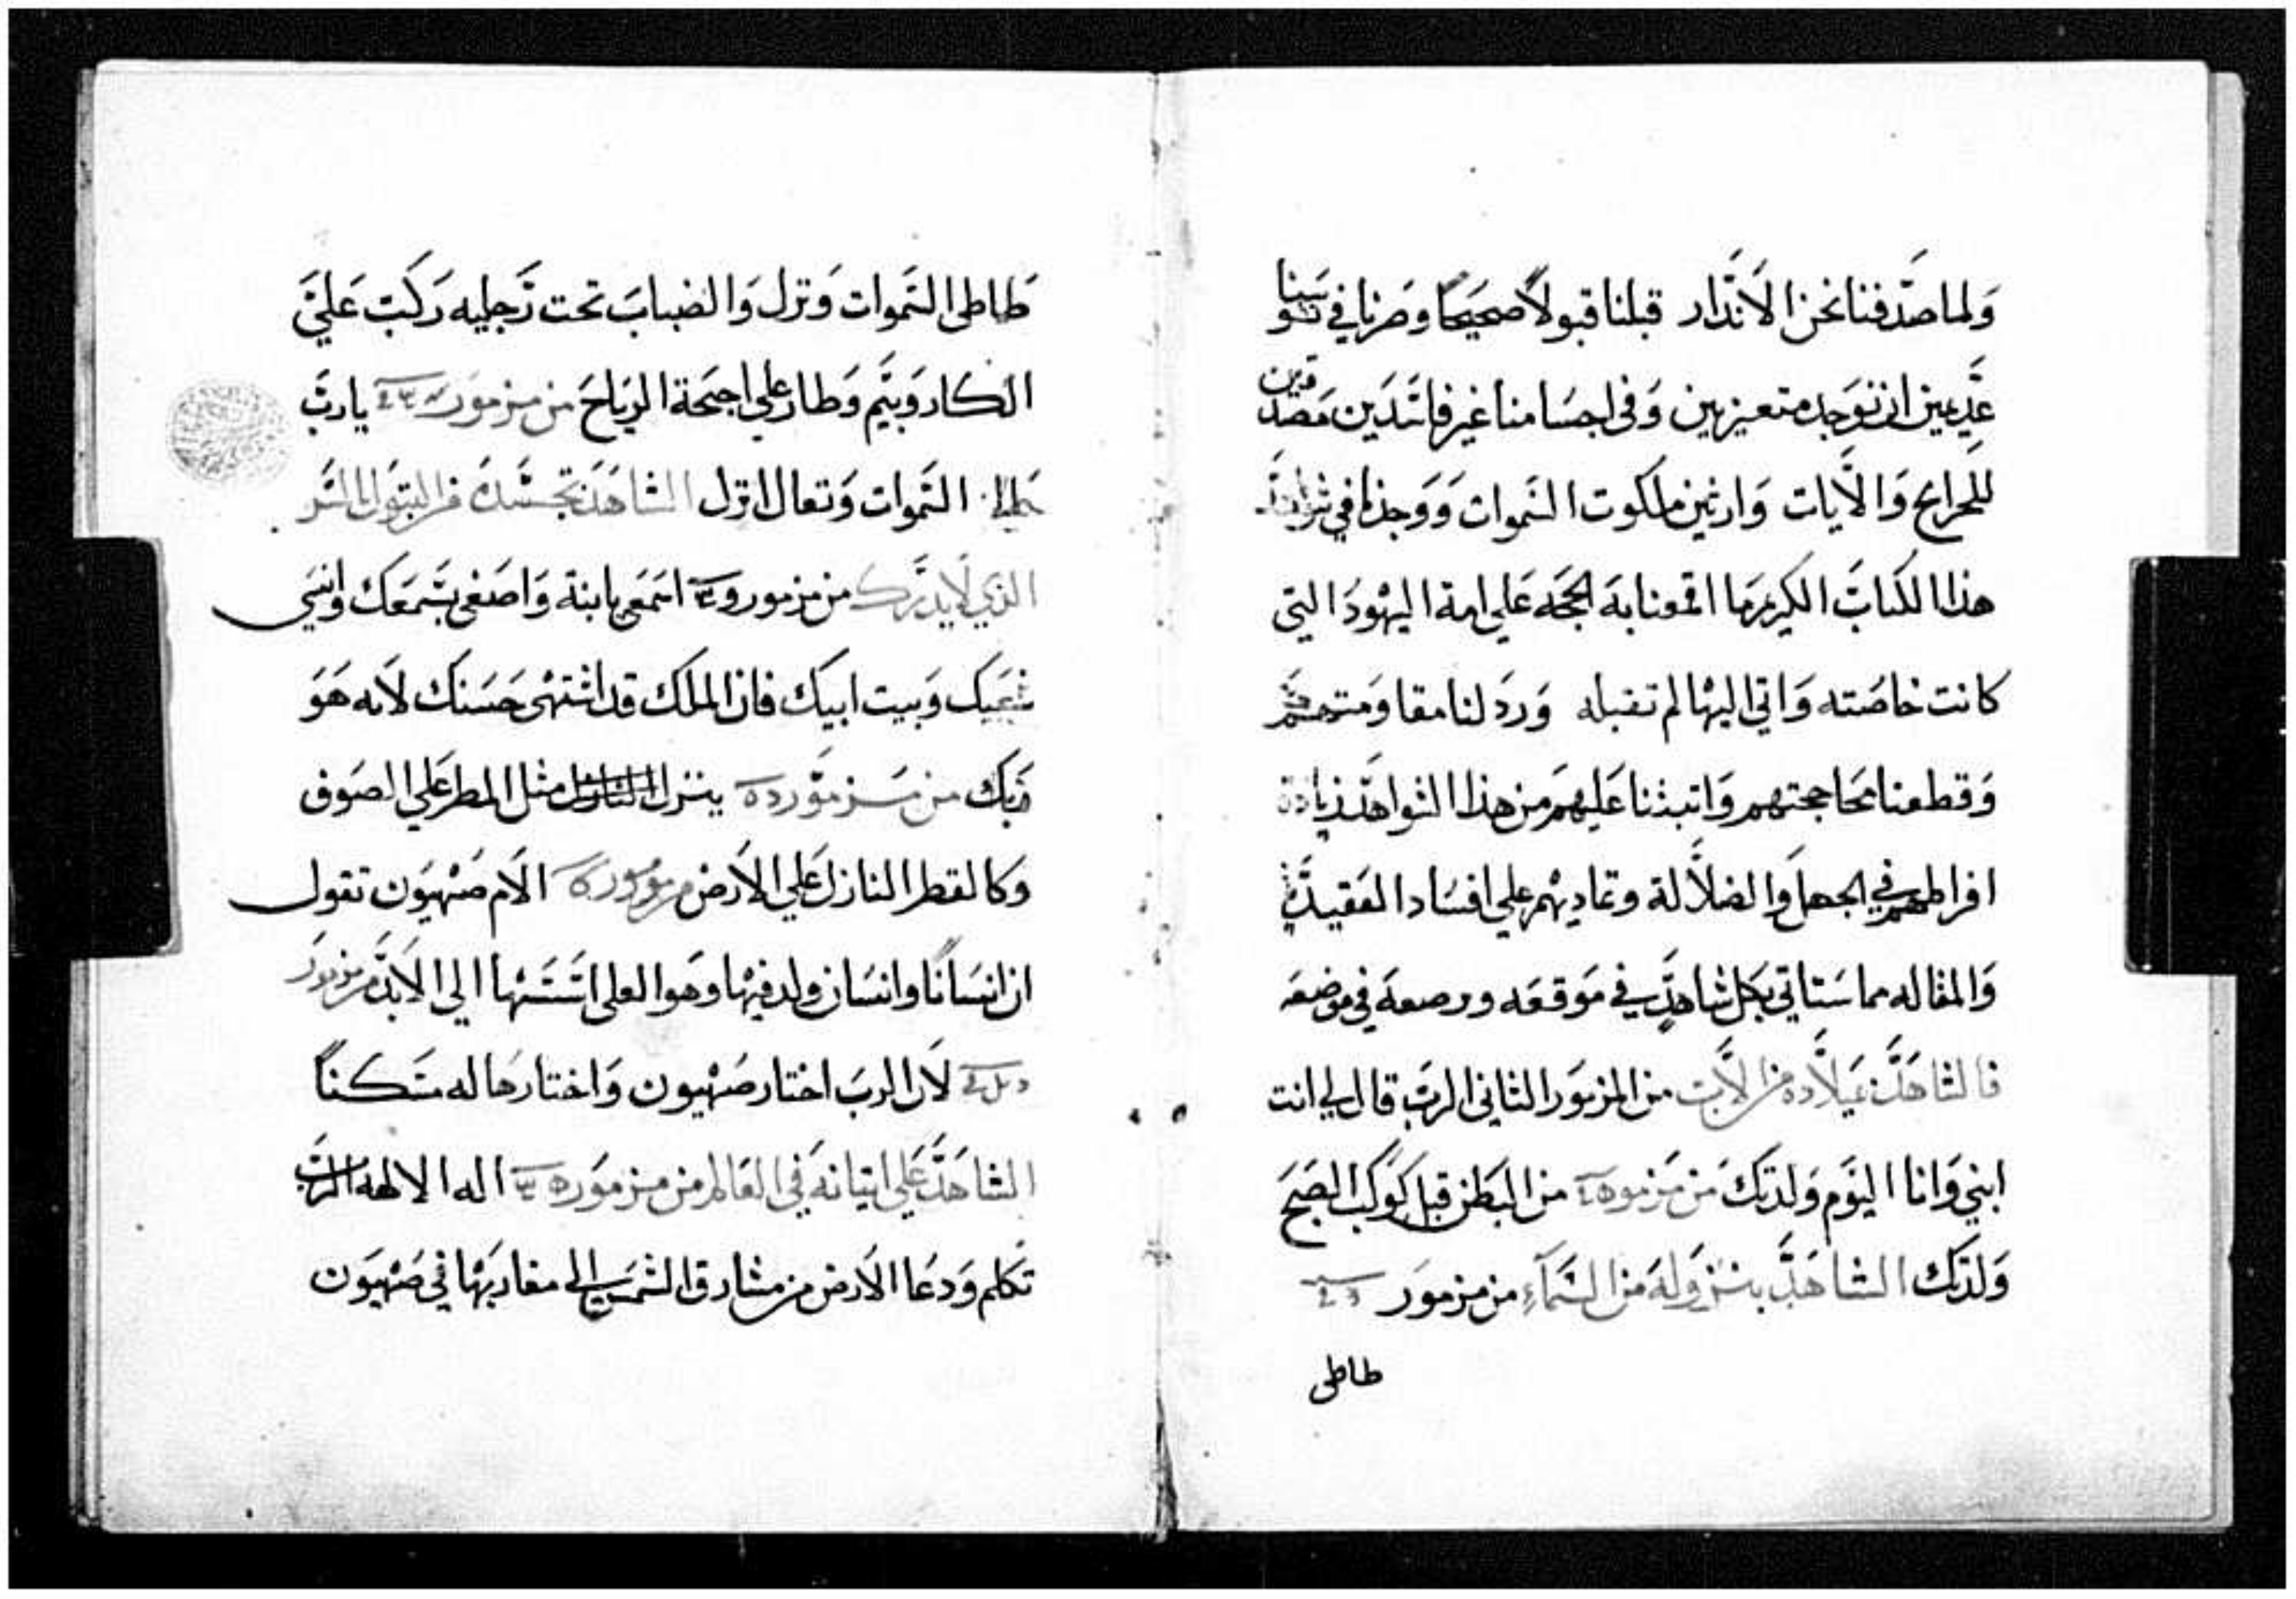 ولما صدفنا نحن الانذار قبلنا قبولاً صحيحًا وصرنا في نفوسنا
عديمين ان نوجد متعيزيين وفى اجسامنا غير فاسدين مصدقين
للحرايح والايات وارثين ملكوت السموات ووجدنا في
هذا الكتاب الكريم ما اقمعنا به الحجه علي امة اليهود التي
كانت خاصته واتي اليها لم تقبله ورد لنا مقاومتهم
وقطعنا محاججتهم واتبثنا عليهم من هذا الشواهد زيادة
افراطهم في الجهل والضلالة وتماديهم علي افساد العقيدة
والمقاله مما ستاتي بكل شاهد في موقعه ورصعه في موضعه
فالشاهد ميلاده من الاب من المزمور الثاني الرب قال لي انت
ابني وانا اليوم ولدتك من مزمور من البطن قبل كوكب الصبح
ولدتك الشاهد بنزوله من السماء من مزمور
طاطى
طاطى السموات ونزل والضباب تحت رجليه ركب علي
الكاروبيم وطار علي اجنحة الرياح من مزمور يارب
السموات وتعال انزل الشاهد تجسده من البتول
الذي لا يدرك من مزمور اسمعي يا ابنة واصغي بسمعك وانسي
شعبك وبيت ابيك فان الملك قد اشتهى حسنك لانه هو
ربك من مزمور ينزل مثل المطر علي الصوف
وكالقطر النازل علي الارض مزمور الام صهيون تقول
ان انسانًا وانسان ولد فيها وهو العلى اسسها الي الابد من مزمور
لان الرب اختار صهيون واختارها له مسكنًا
الشاهد علي اتيانه في العالم من مزمور اله الالهه الرب
تكلم ودعا الارض من مشارق الشمس الي مغاربها في صهيون